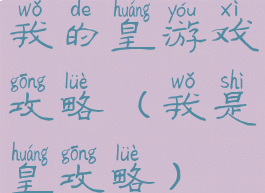 wǒ de huáng yóu xì
我的皇游戏
gōng lüè wǒ shì
攻略（我是
huáng gōng lüè
皇攻略）